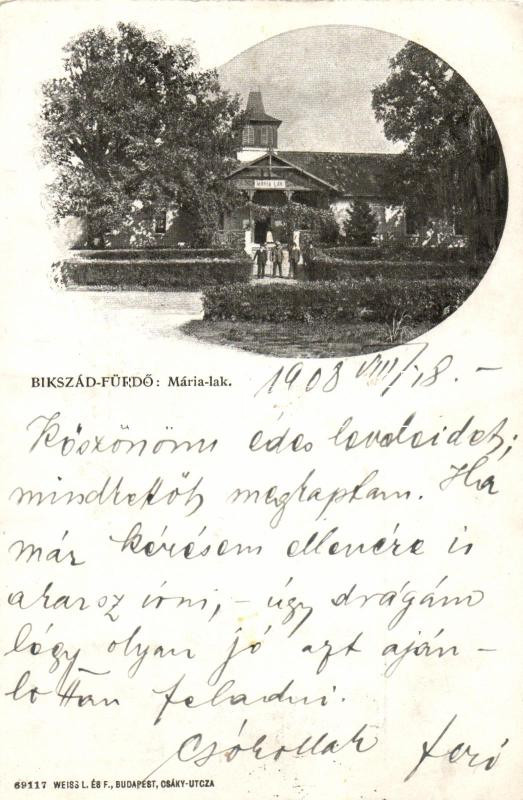 MÁRIA LAK
BIKSZÁD-FÜRDŐ: Mária-lak.
1908 VIII/18. –
Köszönöm édes leveleidet;
mindkettőt megkaptam. Ha
már kérésem ellenére is
akarsz írni, – úgy drágám
légy olyan jó azt aján-
lottan feladni.
Csókollak Feri
69117 WEISS L. ÉS F., BUDAPEST, CSÁKY-UTCZA